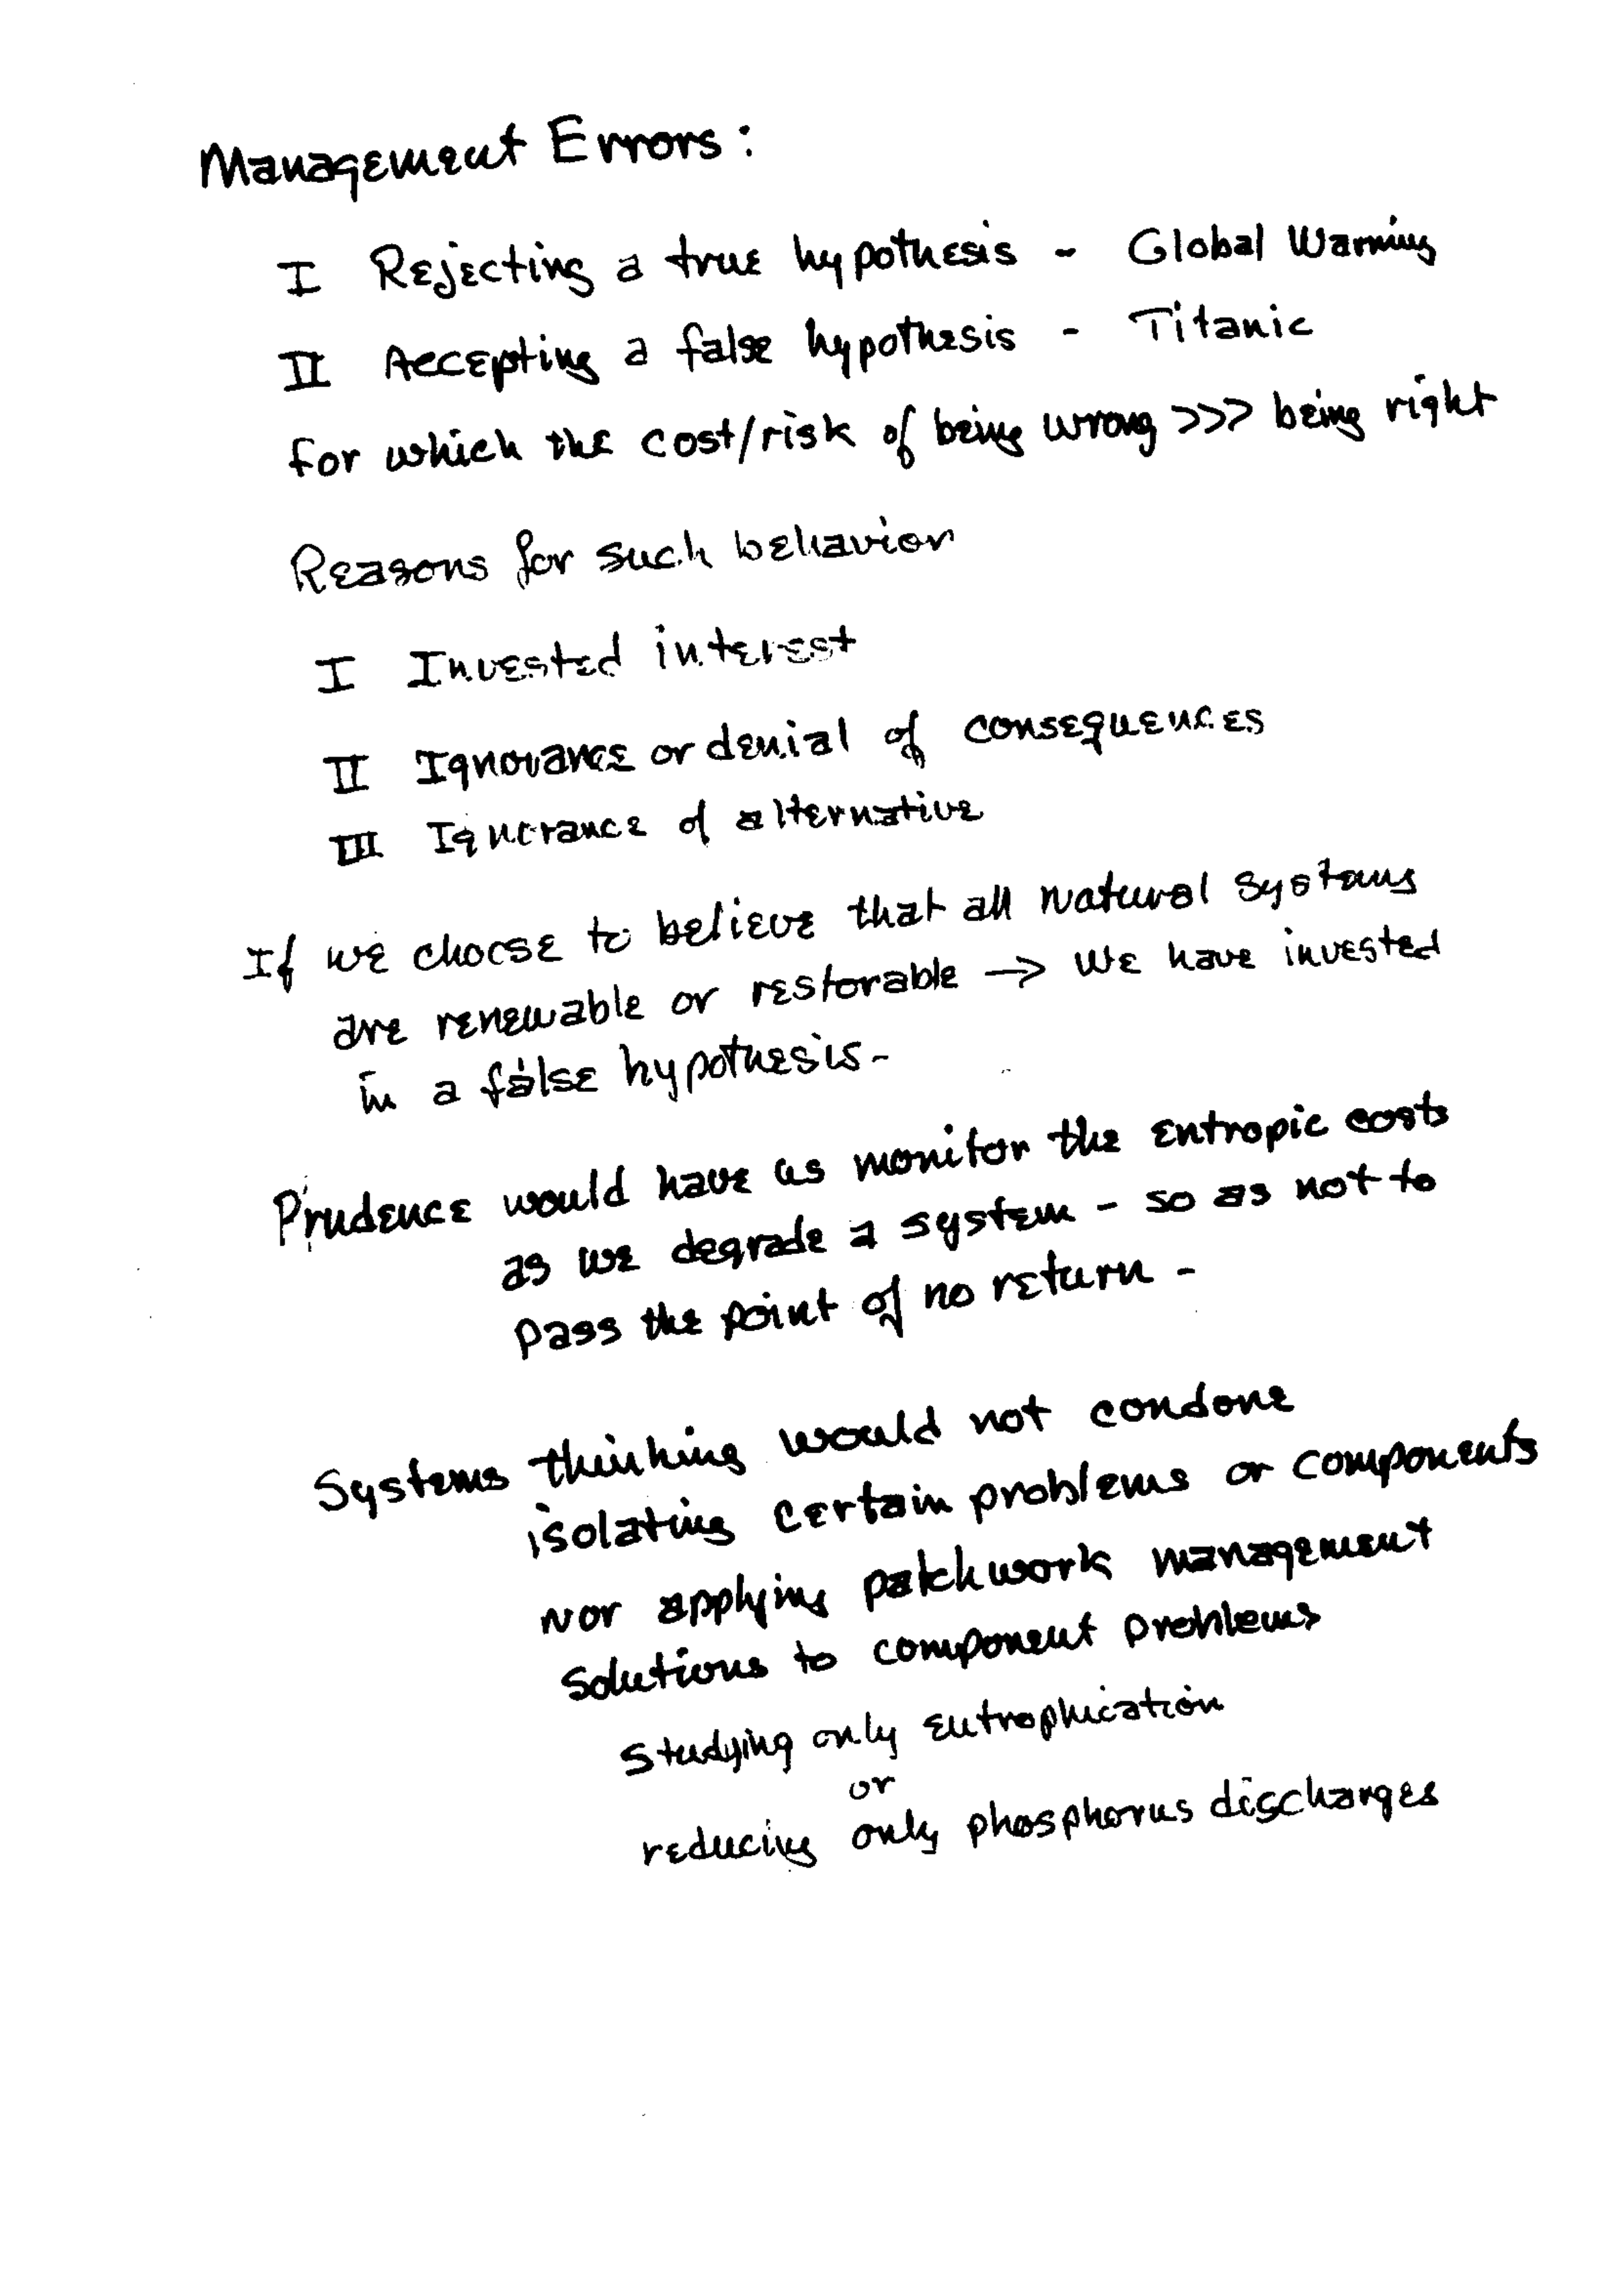 Management Errors:
I Rejecting a true hypothesis - Global Warming
II Accepting a false hypothesis - Titanic
for which the cost/risk of being wrong >>> being right
Reasons for such behavior
I Invested interest
II Ignorance or denial of consequences
III Ignorance of alternative
If we choose to believe that all natural systems
are renewable or restorable → we have invested
in a false hypothesis-
Prudence would have us monitor the entropic costs
as we degrade a system - so as not to
pass the point of no return -
Systems thinking would not condone
isolating certain problems or components
nor applying patchwork management
solutions to component problems
studying only eutrophication
or
reducing only phosphorus discharges